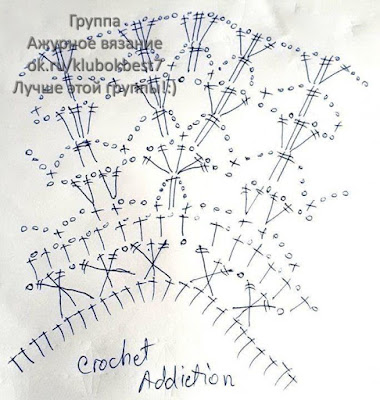 Группа
Ажурное вязание
ok.ru/klubokbest7
Лучше этой группы!:)
Crochet
Addiction